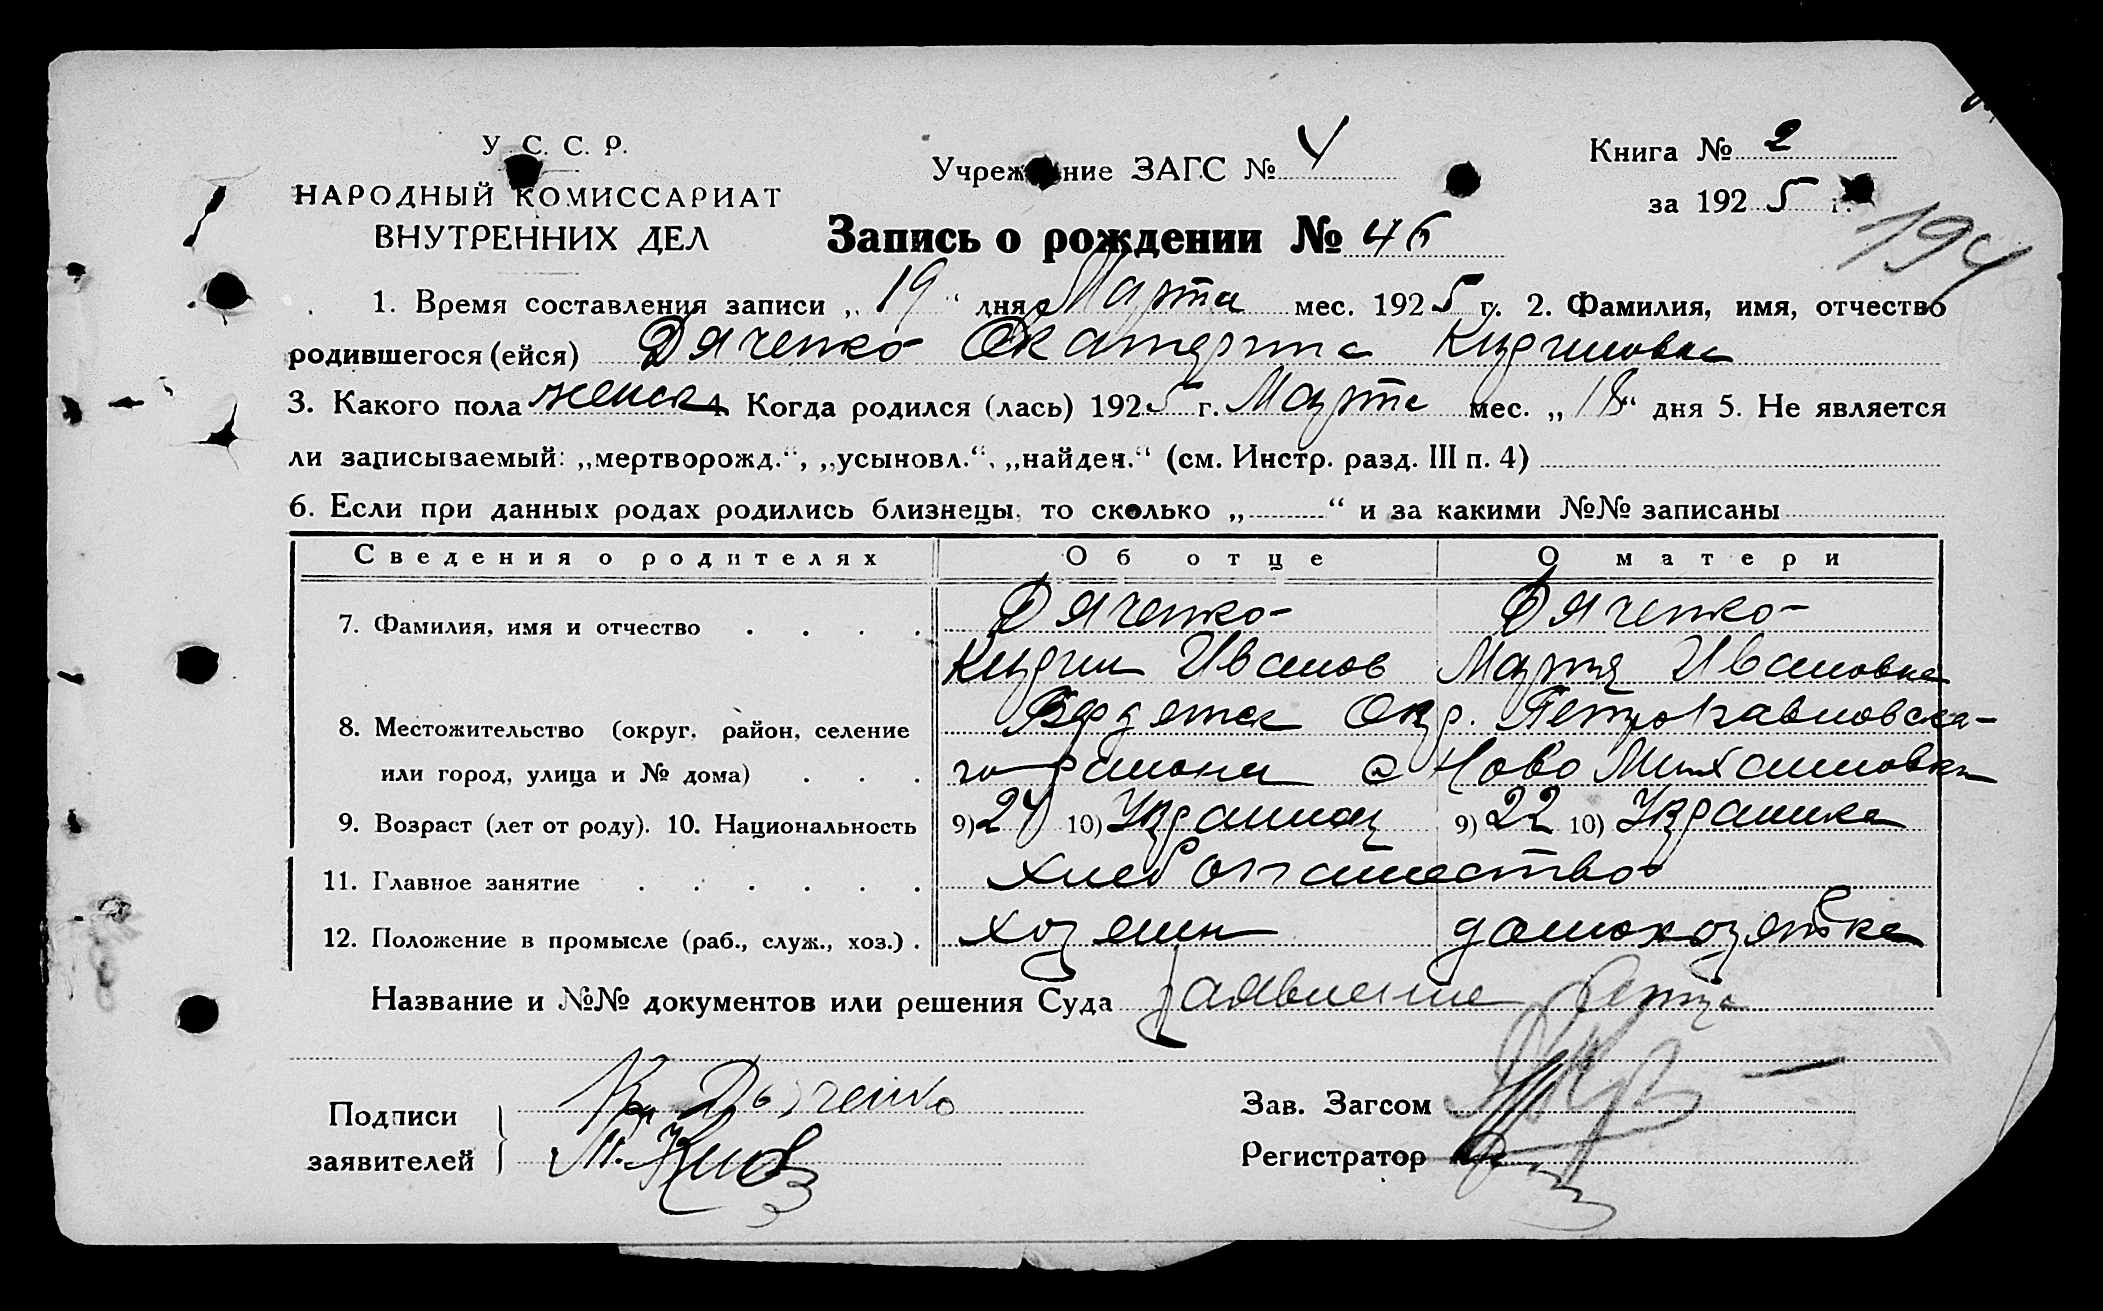 У. С. С. Р.
НАРОДНЫЙ КОМИССАРИАТ
ВНУТРЕННИХ ДЕЛ
Учреждение ЗАГС № 4
Книга № 2
за 1925 г.
194
Запись о рождении № 46
1. Время составления записи „19“ дня Марта мес. 1925 г. 2. Фамилия, имя, отчество
родившегося (ейся) Дяченко Екатерина Кирилловна
3. Какого пола женск 4. Когда родился (лась) 1925 г. Марта мес. „18“ дня 5. Не является
ли записываемый: „мертворожд.“, „усыновл.“, „найден.“ (см. Инстр. разд. III п. 4)
6. Если при данных родах родились близнецы, то сколько „ “ и за какими №№ записаны
Сведения о родителях Об отце О матери
7. Фамилия, имя и отчество Дяченко Дяченко
Кирил Иванов Марфа Ивановна
8. Местожительство (округ, район, селение Бердянск Окр. Петропавловска-
или город, улица и № дома) го района с Ново Михайловка
9. Возраст (лет от роду). 10. Национальность 9) 24 10) Украинец 9) 22 10) Украинка
11. Главное занятие хлебопашество
12. Положение в промысле (раб., служ., хоз.) хозяин домохозяйка
Название и №№ документов или решения Суда заявление Отца
Подписи
заявителей
Дяченко
Зав. Загсом
Регистратор